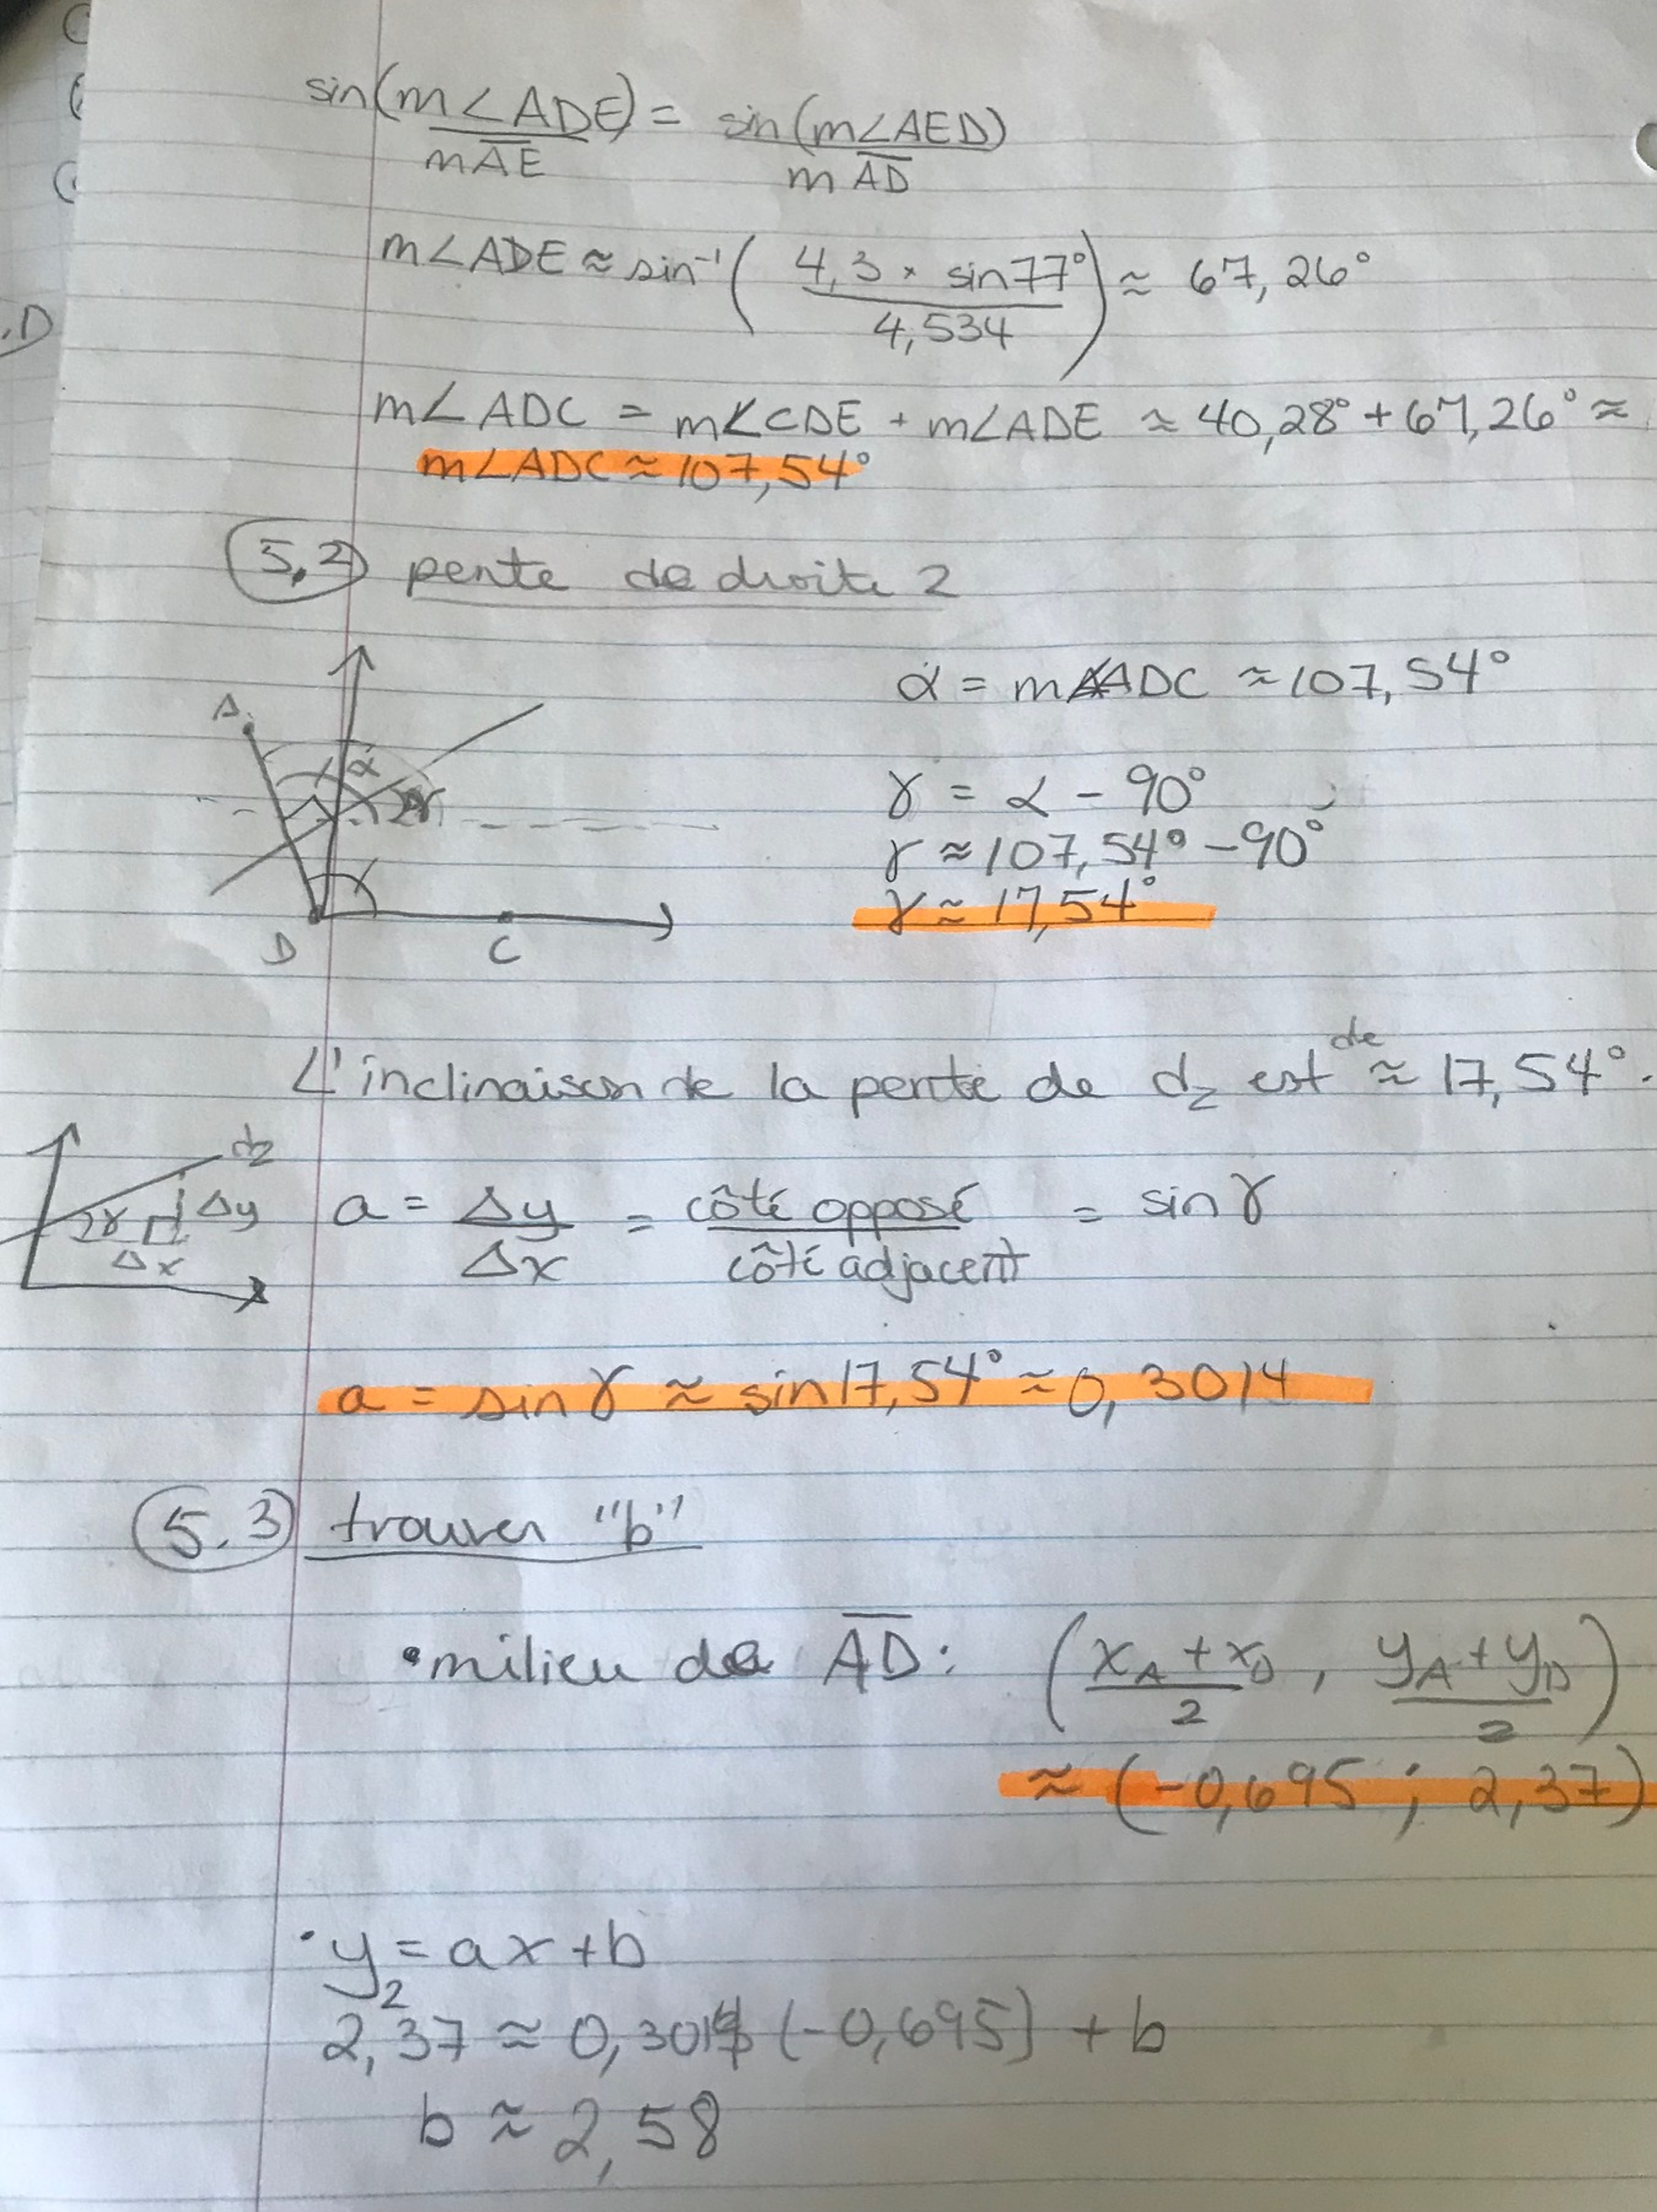 sin(m∠ADE) = sin(m∠AED)
mAE mAD
m∠ADE ≈ sin⁻¹( 4,3 × sin77° ) ≈ 67,26°
4,534
.D
m∠ADC = m∠CDE + m∠ADE ≈ 40,28° + 67,26° ≈
m∠ADC ≈ 107,54°
5.2 pente de droite 2
α = m∠ADC ≈ 107,54°
A
α
γ = α - 90°
γ ≈ 107,54° - 90°
γ ≈ 17,54°
D C
L'inclinaison de la pente de d₂ est de ≈ 17,54°.
d₂
γ Δy
Δx
a = Δy = côté opposé = sin γ
Δx côté adjacent
a = sin γ ≈ sin17,54° ≈ 0,3014
5.3 trouver "b"
• milieu de AD : ( x_A + x_D , y_A + y_D )
2 2
≈ (-0,695 ; 2,37)
• y₂ = ax + b
2,37 ≈ 0,3014 (-0,695) + b
b ≈ 2,58